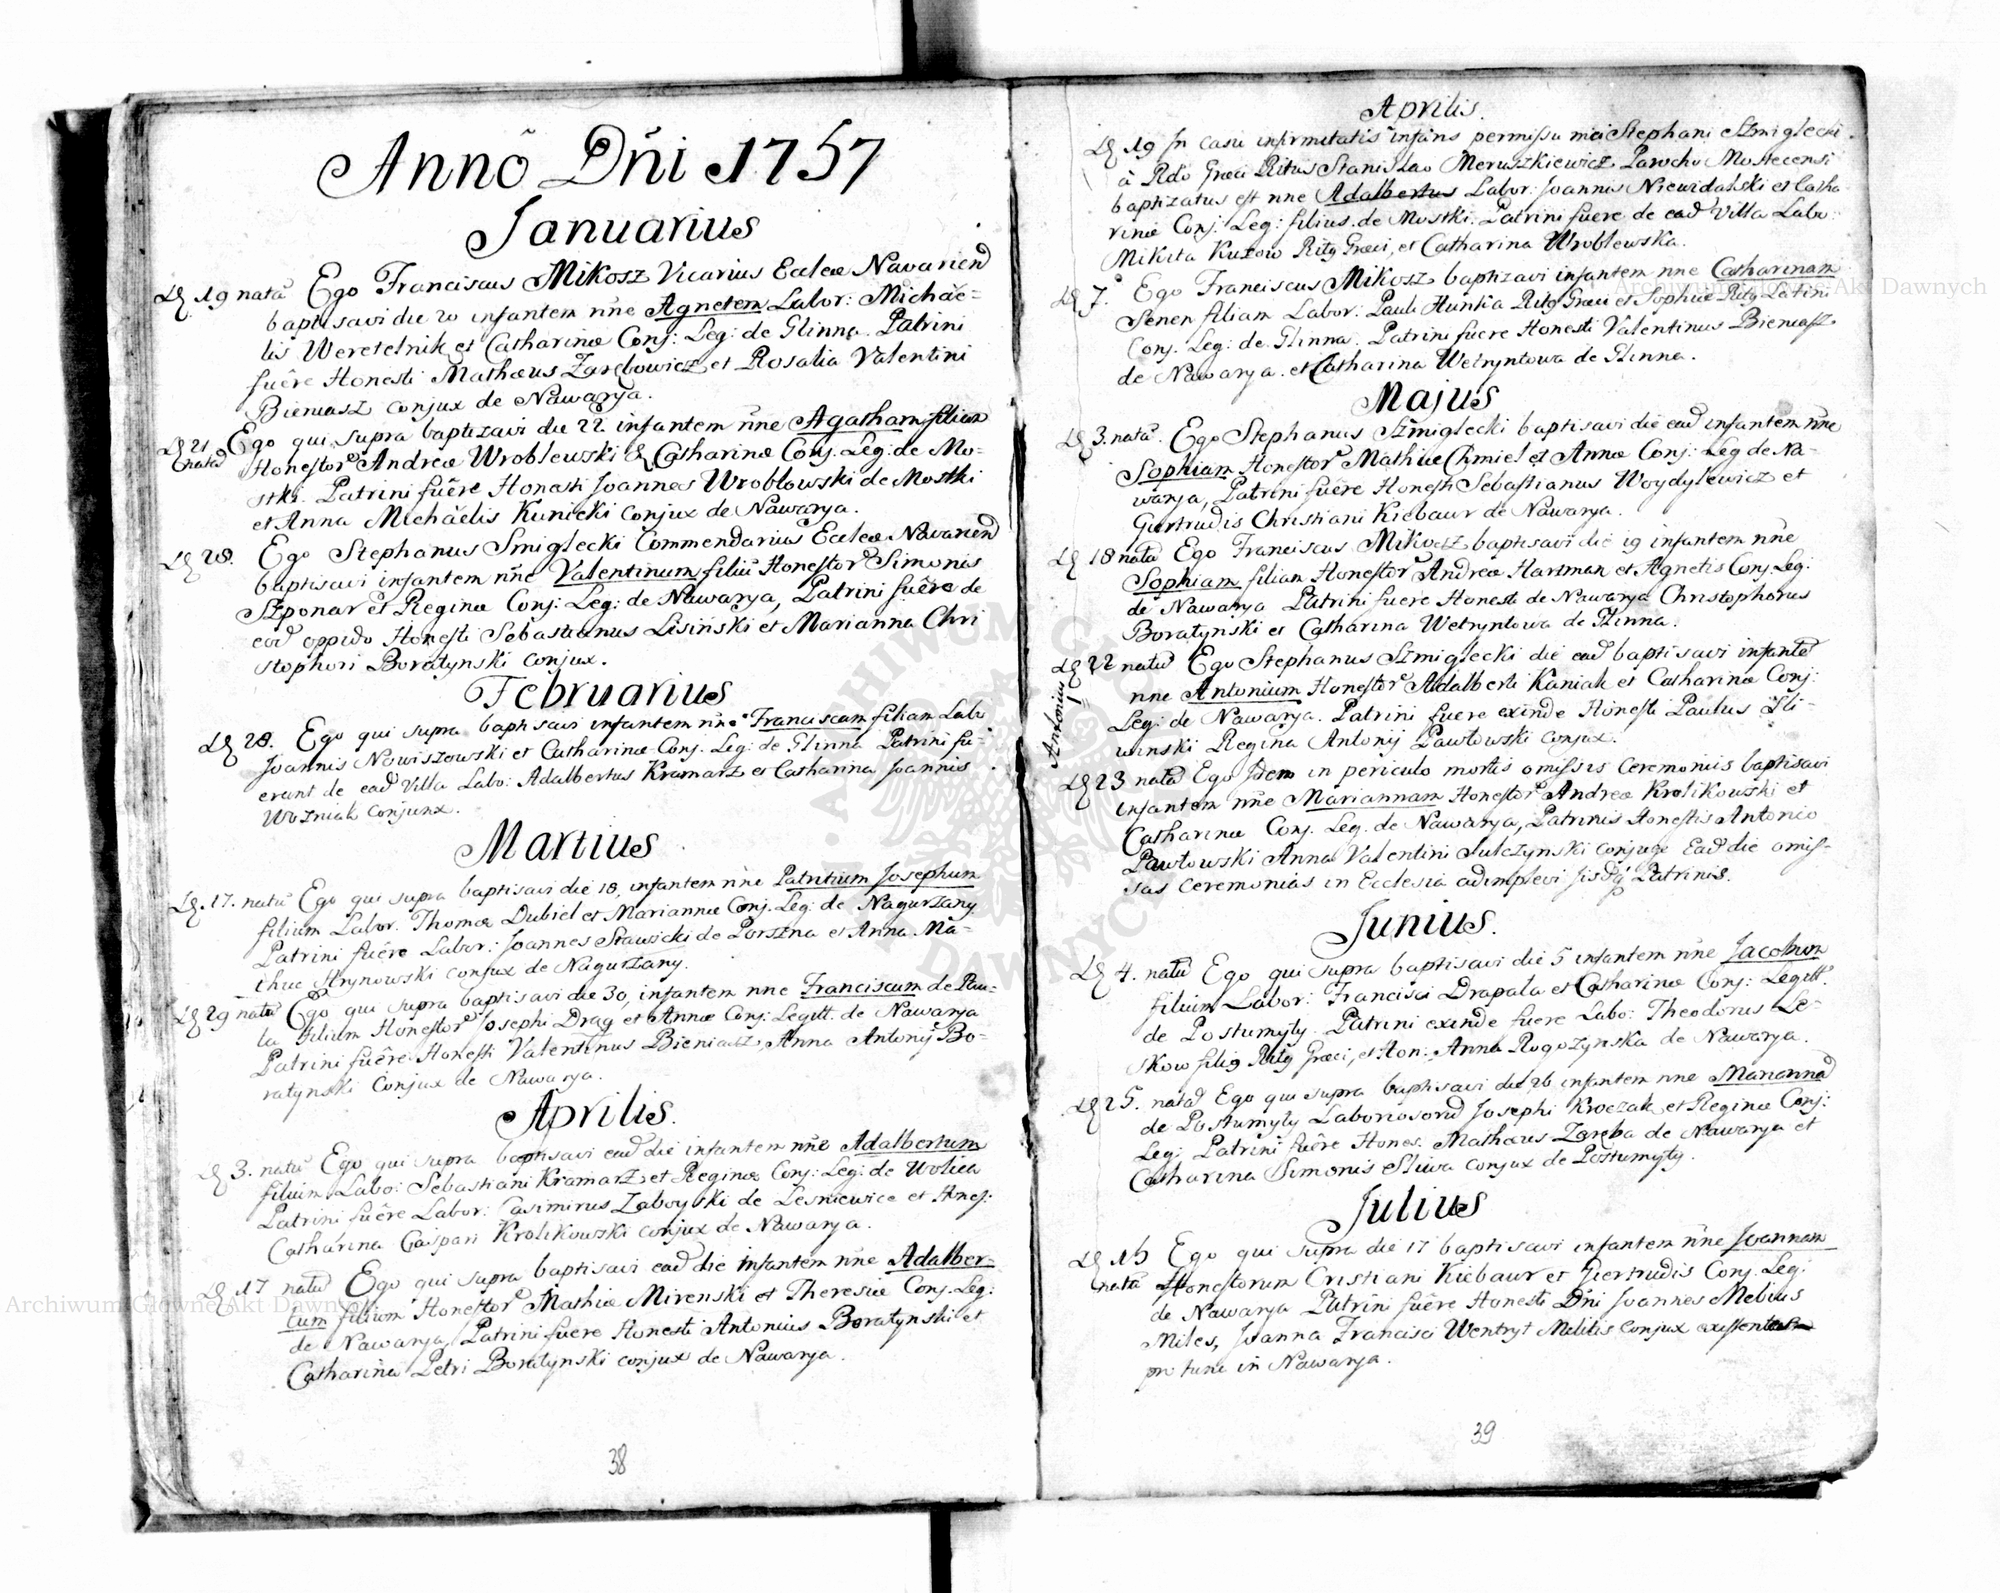 Anno Dñi 1757
Januarius
19 nata Ego Franciscus Mikosz Vicarius Eccleæ Navarien
baptisavi die 20 infantem nñe Agnetem Labor: Michae=
lis Weretelnik et Catharinæ Conj: Leg: de Glinna. Patrini
fuêre Honesti Mathæus Zarębowicz et Rosalia Valentini
Bieniasz conjux de Nawarya.
21 Ego qui supra baptizavi die 22 infantem nñe Agatham filiam
nata Honestor Andreæ Wroblewski & Catharinæ Conj. Leg: de Mo-
stki. Patrini fuêre Honesti Joannes Wroblowski de Mostki
et Anna Michaëlis Kunicki conjux de Nawarya.
28. Ego Stephanus Smiglecki Commendarius Eccleæ Navarien
baptisavi infantem nñe Valentinum filiũ Honestor Simonis
Szponar et Reginæ Conj: Leg: de Nawarya, Patrini fuêre de
eod oppido Honesti Sebastianus Lisiński et Marianna Chri
stophori Boratynski conjux.
Februarius
28. Ego qui supra baptisavi infantem nñe Franciscam filiam Labo
Joannis Nowiszowski et Catharinæ Conj. Leg: de Glinna Patrini fu-
erunt de ead Villa Labo: Adalbertus Kramarz et Catharina Joannis
Wozniak Conjunx.
Martius
17. natũ Ego qui supra baptisavi die 18, infantem nñe Patritium Josephum
filium Labor. Thomæ Dubiel et Mariannæ Conj. Leg: de Nagurzany
Patrini fuêre Labor: Joannes Stawicki de Porszna et Anna Ma-
thiæ Hrynowski conjux de Nagurzany.
29 natũ Ego qui supra baptisavi die 30, infantem nñe Franciscum de Pau-
la filium Honestor Josephi Drag et Annæ Conj: Legitt. de Nawarya
Patrini fuêre Honesti Valentinus Bieniasz, Anna Antonij Bo-
ratynski Conjux de Nawarya.
Aprilis.
3. natũ Ego qui supra baptisavi ead die infantem nñe Adalbertum
filium Labo: Sebastiani Kramarz et Reginæ Conj: Leg: de Wolica
Patrini fuêre Labor: Casimirus Zaboyski de Lesniewice et Hones:
Catharina Caspari Krolikowski conjux de Nawarya.
17 natũ Ego qui supra baptisavi ead die infantem nñe Adalber-
tum filium Honestor Mathiæ Mirenski et Theresiæ Conj. Leg:
de Nawarya, Patrini fuere Honesti Antonius Boratynski et
Catharina Petri Boratynski conjux de Nawarya.
38
Aprilis.
19 In casu infirmitatis infans permissu mei Stephani Szmiglecki
à Rdo Græci Ritus Stanislao Meruszkiewicz Parocho Mostecensi
baptizatus est nñe Adalbertus Labor: Joannis Niewidalski et Catha
rinæ Conj: Leg: filius de Mostki. Patrini fuere de ead Villa Labo:
Mikita Kuzow Ritg Græci, et Catharina Wroblewska.
7. Ego Franciscus Mikosz baptizavi infantem nñe Catharinam
filiam Labor: Pauli Hunka Ritg Græci et Sophiæ Ritg Latini
Conj. Leg: de Glinna. Patrini fuere Honesti Valentinus Bieniasz
de Nawarya. et Catharina Wetryntowa de Glinna.
Majus
3. nata. Ego Stephanus Szmiglecki baptisavi die ead infantem nñe
Sophiam Honestor Mathiæ Chmiel et Annæ Conj: Leg de Na-
warya, Patrini fuêre Honesti Sebastianus Woydylewicz et
Gertrudis Christiani Kiebaur de Nawarya.
18 nata Ego Franciscus Mikosz baptisavi die 19 infantem nñe
Sophiam filiam Honestor Andreæ Hartman et Agnetis Conj Leg:
de Nawarya Patrini fuere Honesti de Nawarya Christophorus
Boratynski et Catharina Wetryntowa de Glinna.
22 natũ Ego Stephanus Szmiglecki die ead baptisavi infante
nñe Antonium Honestor Adalberti Kaniak et Catharinæ Conj:
Leg: de Nawarya. Patrini fuere exinde Honesti Paulus Gli-
winski Regina Antonij Pawłowski conjux.
Antonius
23 nata Ego Idem in periculo mortis omissis Ceremoniis baptisavi
infantem nñe Mariannam Honestor Andreæ Krolikowski et
Catharinæ Conj. Leg. de Nawarya, Patrinis Honestis Antonio
Pawłowski Anna Valentini Sulczynski conjuge Ead die omis-
sas ceremonias in Ecclesia adimplevi iisdẽ Patrinis.
Junius.
4. natũ Ego qui supra baptisavi die 5 infantem nñe Jacobum
filium Labor: Francisci Drapała et Catharinæ Conj: Legitt.
de Postumyty Patrini exinde fuere Labo: Theodorus Le-
skow filig Ritg Græci, et Hon: Anna Rogozynska de Nawarya.
25. nata Ego qui supra baptisavi die 26 infantem nñe Marianna
de Postumyty Laboriosorũ Josephi Kroczak et Reginæ Conj:
Leg: Patrini fuêre Hones. Mathæus Zaręba de Nawarya et
Catharina Simonis Sliwa conjux de Postumyty.
Julius
15 Ego qui supra die 17 baptisavi infantem nñe Joannam
nata Honestorum Cristiani Kiebaur et Giertrudis Conj. Leg:
de Nawarya Patrini fuêre Honesti Dñi Joannes Mebius
Miles, Joanna Francisci Wentryt Militis conjux
pro tunc in Nawarya.
39